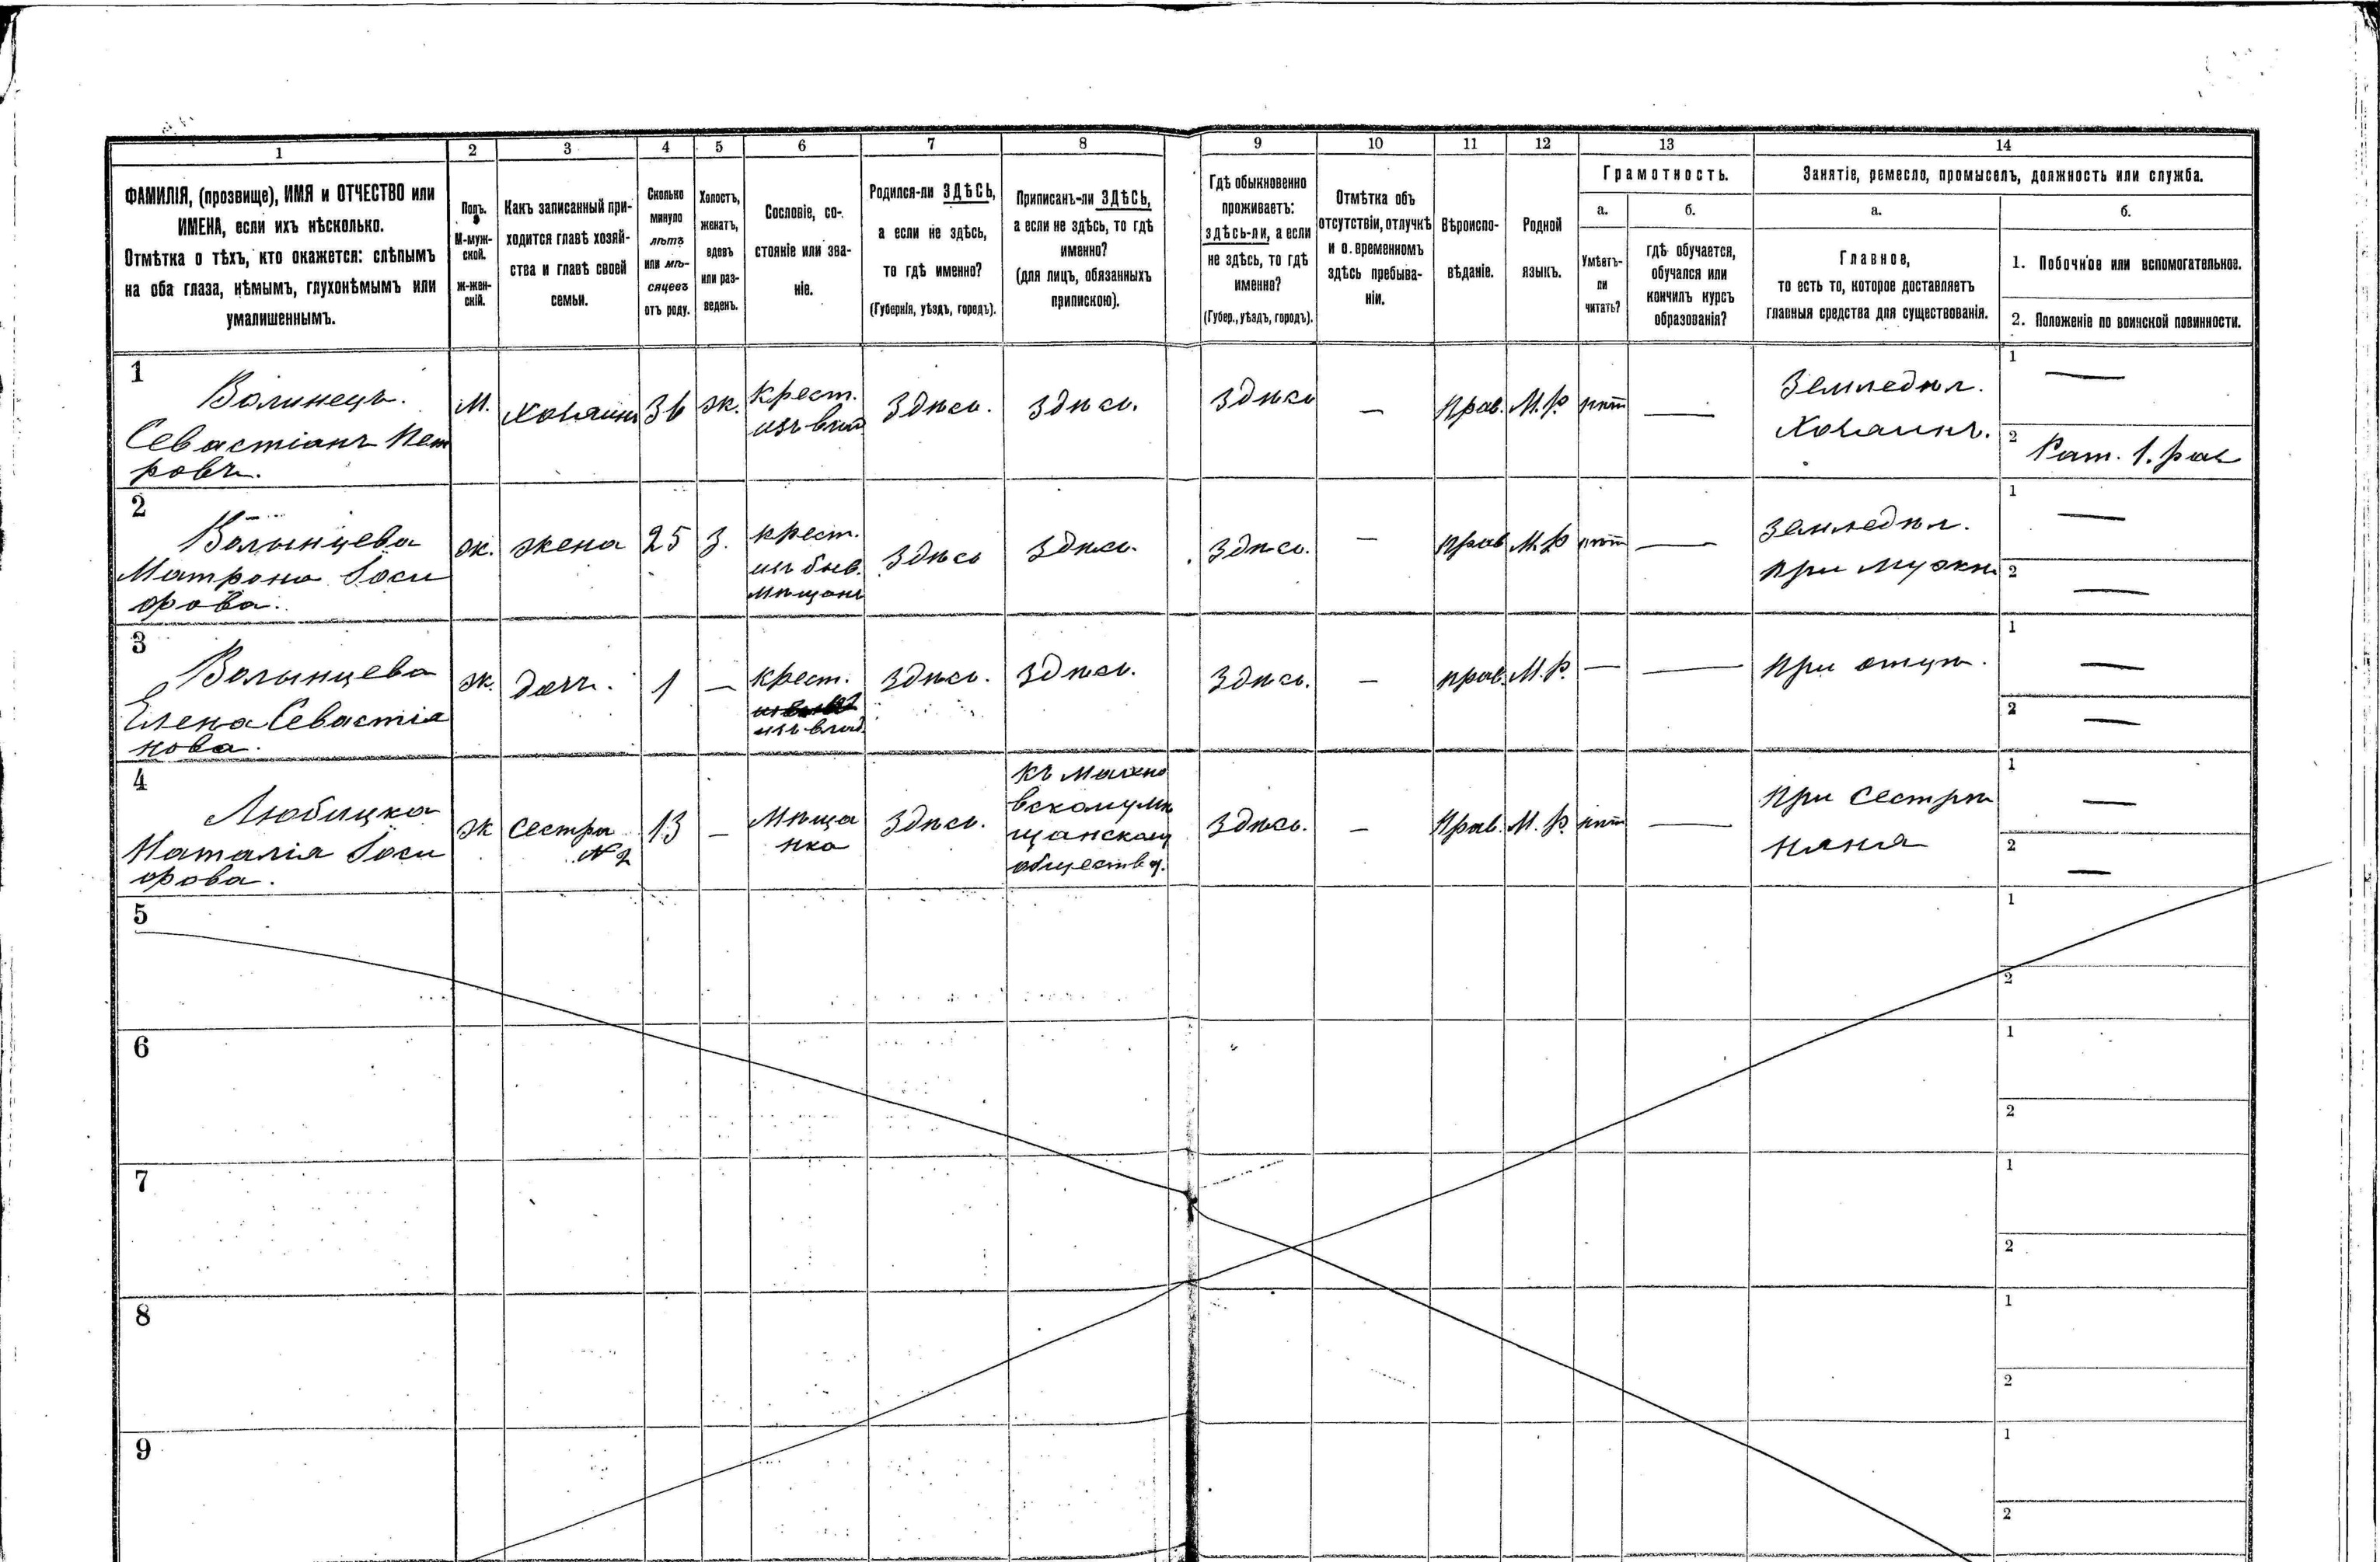 1 2 3 4 5 6 7 8 9 10 11 12 13 14
ФАМИЛІЯ, (прозвище), ИМЯ и ОТЧЕСТВО или
ИМЕНА, если ихъ нѣсколько.
Отмѣтка о тѣхъ, кто окажется: слѣпымъ
на оба глаза, нѣмымъ, глухонѣмымъ или
умалишеннымъ.
Полъ.
М-муж-
ской.
ж-жен-
скій.
Какъ записанный при-
ходится главѣ хозяй-
ства и главѣ своей
семьи.
Сколько
минуло
лѣтъ
или мѣ-
сяцевъ
отъ роду.
Холостъ,
женатъ,
вдовъ
или раз-
веденъ.
Сословіе, со-
стояніе или зва-
ніе.
Родился-ли ЗДѢСЬ,
а если не здѣсь,
то гдѣ именно?
(Губернія, уѣздъ, городъ).
Приписанъ-ли ЗДѢСЬ,
а если не здѣсь, то гдѣ
именно?
(для лицъ, обязанныхъ
припискою).
Гдѣ обыкновенно
проживаетъ:
здѣсь-ли, а если
не здѣсь, то гдѣ
именно?
(Губер., уѣздъ, городъ).
Отмѣтка объ
отсутствіи, отлучкѣ
и о временномъ
здѣсь пребыва-
ніи.
Вѣроиспо-
вѣданіе.
Родной
языкъ.
Грамотность.
а.
Умѣетъ-
ли
читать?
б.
гдѣ обучается,
обучался или
кончилъ курсъ
образованія?
Занятіе, ремесло, промыселъ, должность или служба.
а.
Главное,
то есть то, которое доставляетъ
главныя средства для существованія.
б.
1. Побочное или вспомогательное.
2. Положеніе по воинской повинности.
1
Волинець.
Севастіанъ Пет
ровъ.
М.
Хозяинъ
36
ж.
крест.
изъ влад
Здѣсь.
Здѣсь.
Здѣсь
—
Прав.
М.р.
нѣт
—
Земледѣл.
Хозяинъ.
1 —
2 Рат. 1. раз
2
Волынцева
Матрона Іоси
фова.
ж.
жена
25
З.
крест.
изъ быв.
мѣщанъ
Здѣсь
Здѣсь.
Здѣсь.
—
Прав
М.р
нѣт
—
Земледѣл.
при мужѣ
1 —
2 —
3
Волынцева
Елена Севастіа
нова.
ж.
дочь.
1
—
крест.
изъ влад.
Здѣсь.
Здѣсь.
Здѣсь.
—
прав.
М.р.
—
—
при отцѣ.
1 —
2 —
4
Любицка
Наталія Іоси
фова.
ж
сестра
№ 2
13
—
Мѣща
нка
Здѣсь.
Къ Махно
вскому мѣ
щанскому
обществу.
Здѣсь.
—
Прав.
М.р.
нѣт
—
При сестрѣ
няня
1 —
2 —
5
1
2
6
1
2
7
1
2
8
1
2
9
1
2